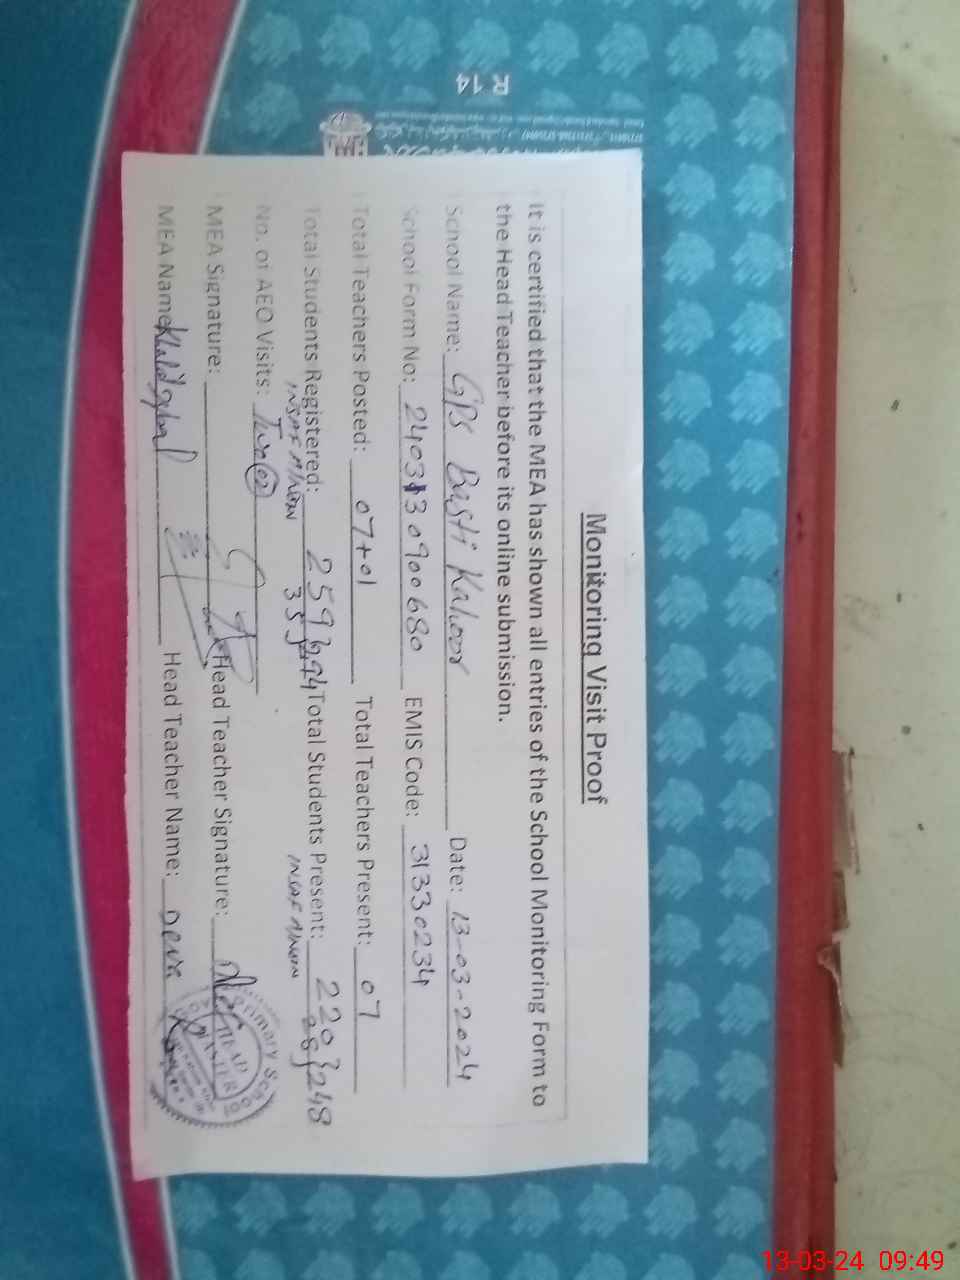 R
14
Monitoring Visit Proof
It is certified that the MEA has shown all entries of the School Monitoring Form to
the Head Teacher before its online submission.
School Name: GPS Basti Kahoor Date: 13-03-2024
School Form No: 2403130900680 EMIS Code: 31330234
Total Teachers Posted: 07+01 Total Teachers Present: 07
Total Students Registered: 259 }294 Total Students Present: 220 }248
INSAF AFNOON 35 INSAF AFNOON 28
No. of AEO Visits: Two (02)
MEA Signature: Head Teacher Signature:
MEA Name: Khalid Iqbal Head Teacher Name:
Primary
HEAD
MASTER
13-03-24 09:49